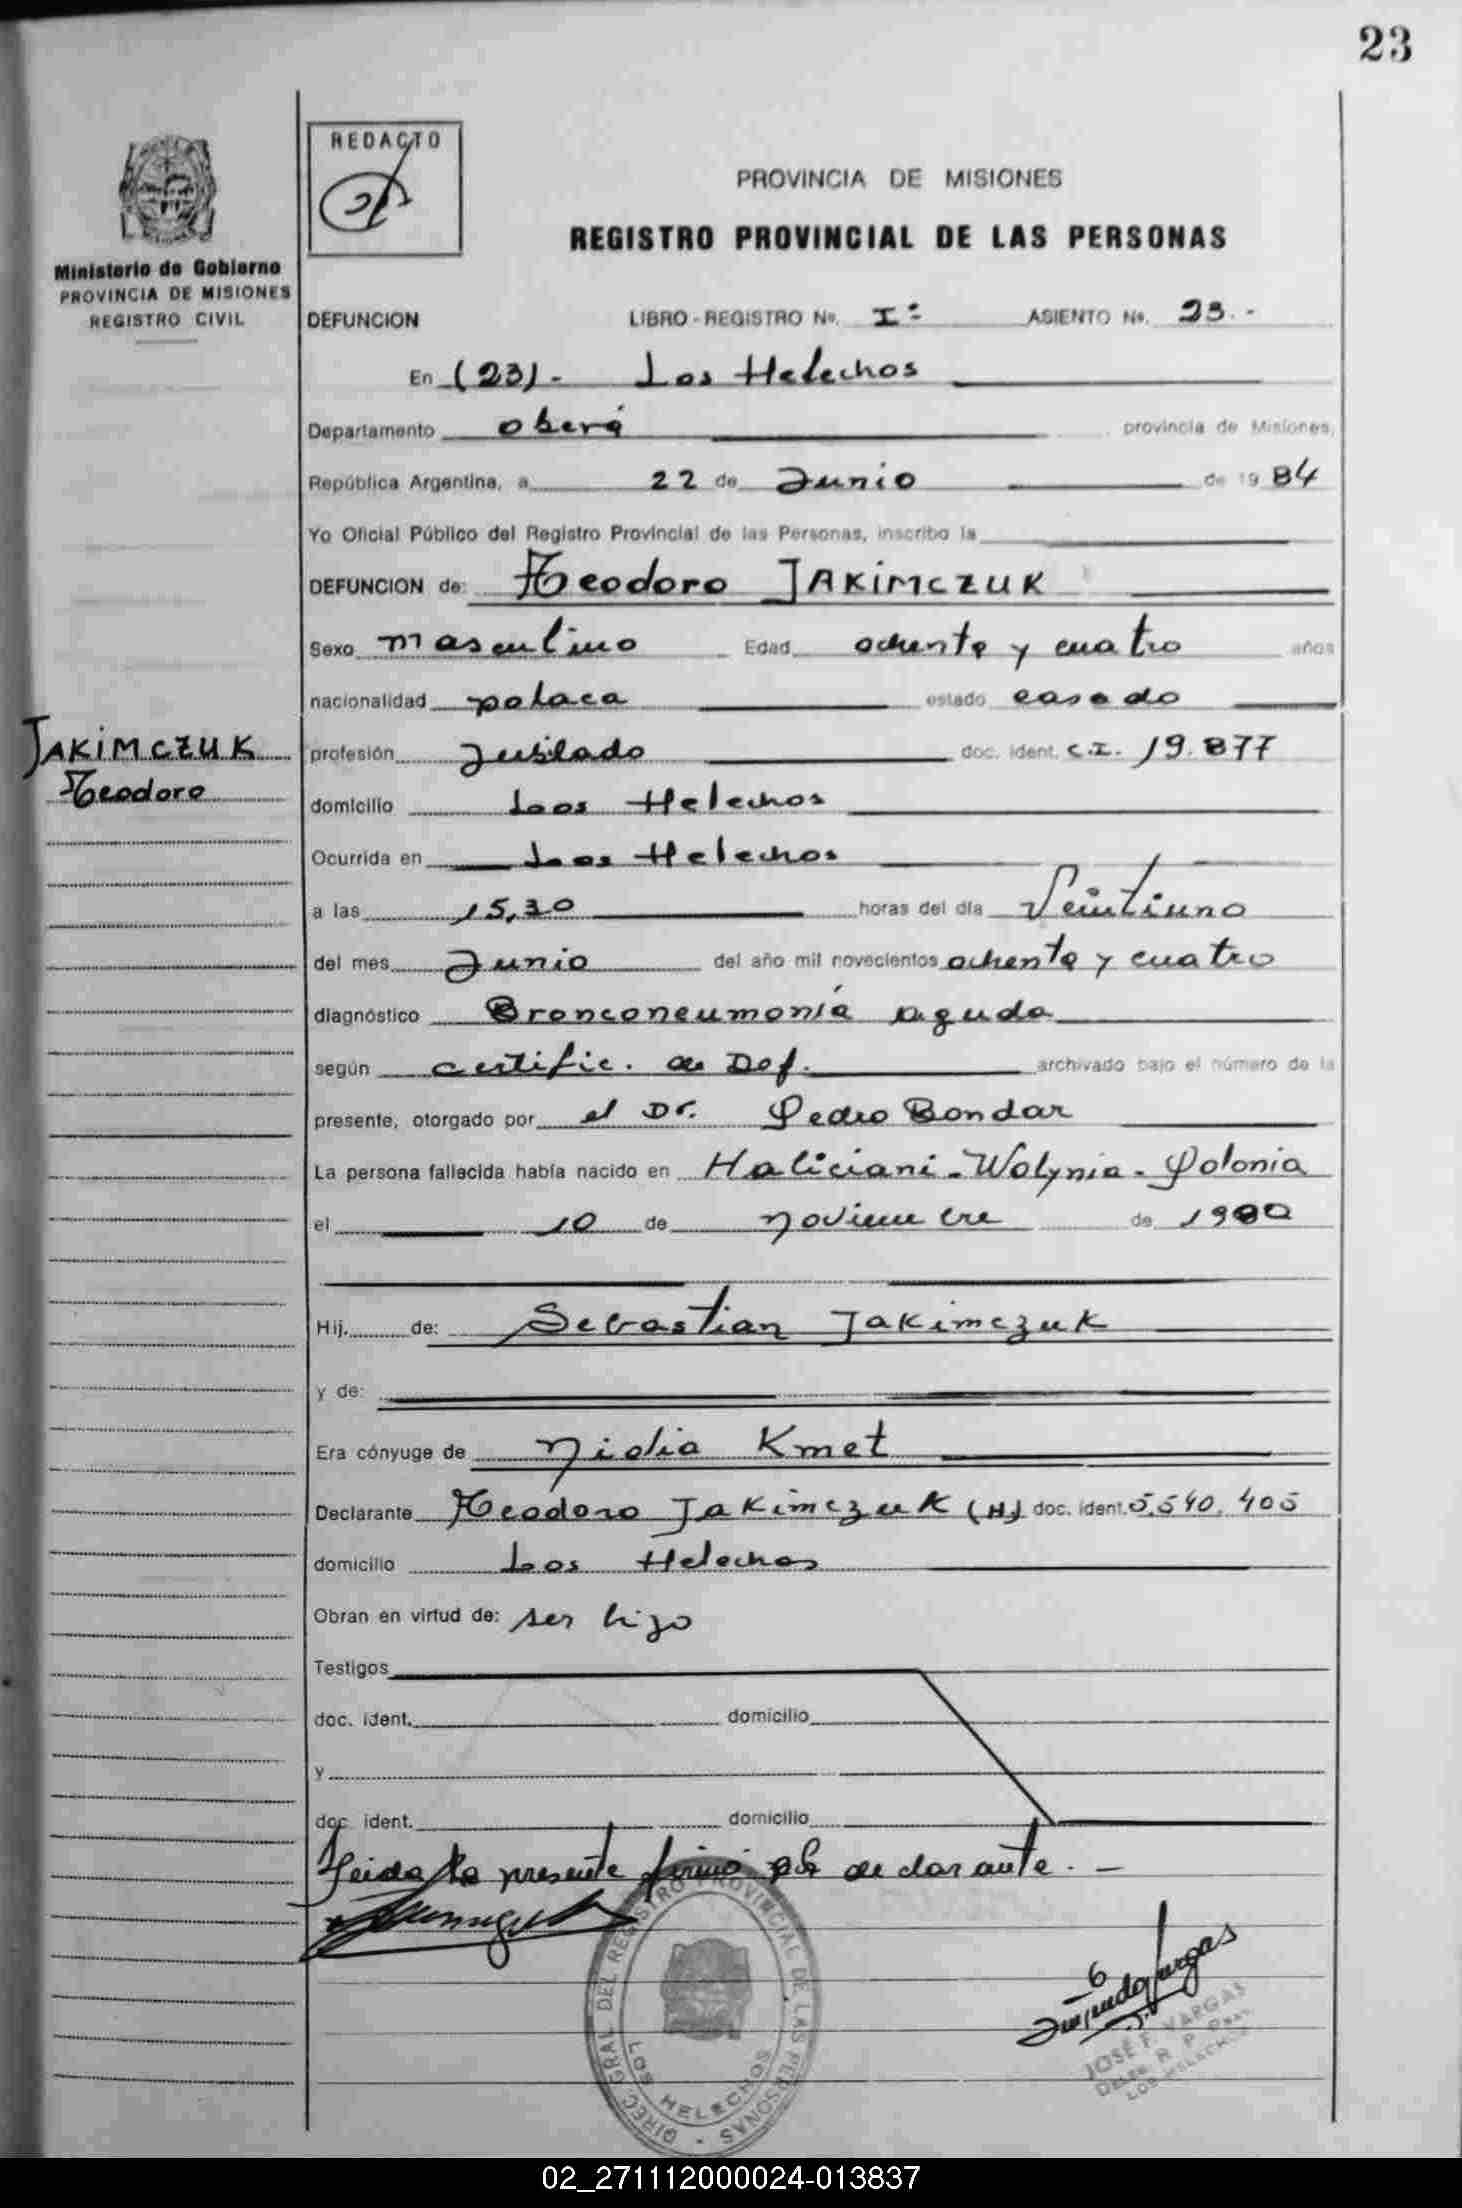 23
REDACTO
PROVINCIA DE MISIONES
REGISTRO PROVINCIAL DE LAS PERSONAS
Ministerio de Gobierno
PROVINCIA DE MISIONES
REGISTRO CIVIL
DEFUNCION LIBRO - REGISTRO No. Iº ASIENTO No. 23.-
En (23).- Los Helechos
Departamento Oberá provincia de Misiones,
República Argentina, a 22 de Junio de 1984
Yo Oficial Público del Registro Provincial de las Personas, inscribo la
DEFUNCION de: Teodoro JAKIMCZUK
Sexo masculino Edad ochenta y cuatro años
nacionalidad polaca estado casado
JAKIMCZUK
Teodoro
profesión Jubilado doc. ident. C.I. 19.877
domicilio Los Helechos
Ocurrida en Los Helechos
a las 15,30 horas del día Veintiuno
del mes Junio del año mil novecientos ochenta y cuatro
diagnóstico Bronconeumonía aguda
según certific. de Def. archivado bajo el número de la
presente, otorgado por el Dr. Pedro Bondar
La persona fallecida había nacido en Haliciani - Wolynia - Polonia
el 10 de noviembre de 1900
Hij. de: Sebastian Jakimczuk
y de:
Era cónyuge de Nidia Kmet
Declarante Teodoro Jakimczuk (H) doc. ident. 5.540.405
domicilio Los Helechos
Obran en virtud de: ser hijo
Testigos
doc. ident. domicilio
y
doc. ident. domicilio
Leida la presente firmó el declarante. -
DIREC. GRAL. DEL REGISTRO PROVINCIAL DE LAS PERSONAS -
LOS HELECHOS
JOSÉ F. VARGAS
LOS HELECHOS
02_271112000024-013837